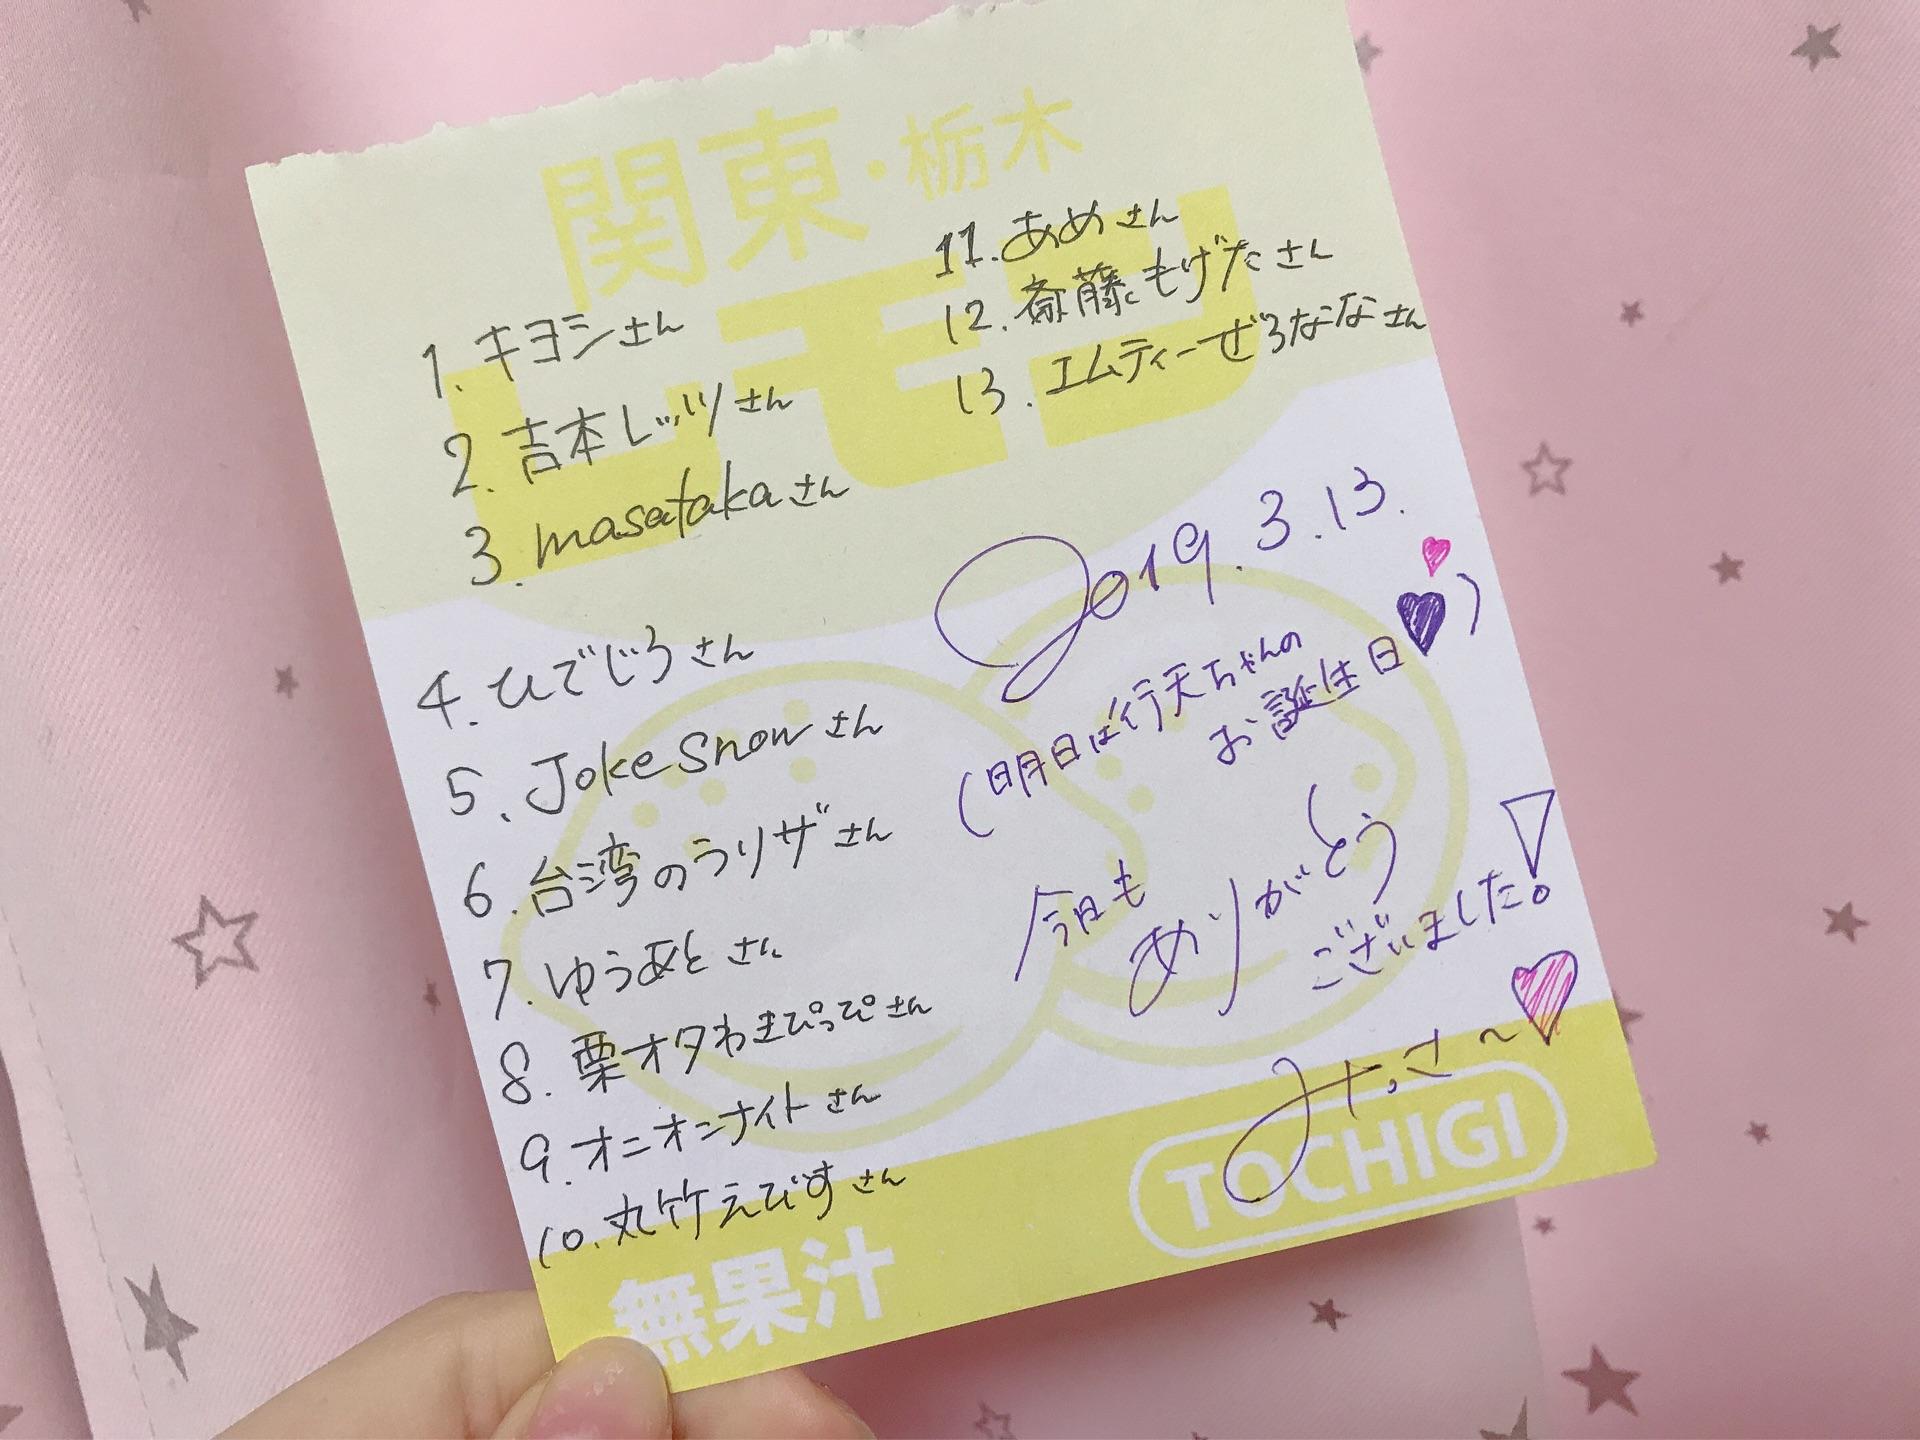 関東・栃木
レモン
1. キヨシさん
2. 吉本レッツさん
3. masatakaさん
4. ひでじろさん
5. Joke Snowさん
6. 台湾のラリザさん
7. ゆうあとさん
8. 栗オタわきぴっぴさん
9. オニオンナイトさん
10. 丸竹えびすさん
11. あめさん
12. 斎藤もげたさん
13. エムティーぜろななさん
2019.3.13.
(明日は行天ちゃんの
お誕生日)
今日も
ありがとう
ございました!
みっさ〜
TOCHIGI
無果汁